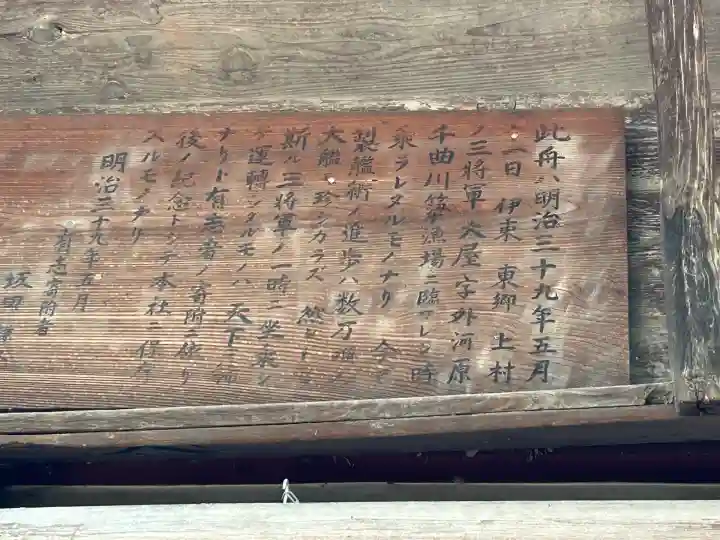 此舟ハ明治三十九年五月
二日 伊東 東郷 上村
ノ三将軍 大屋字外河原
千曲川 漁場ニ臨マレシ時
乗ラレタルモノナリ 今ヤ
製艦術ノ進歩ハ数万
大艦 珍シカラズ 然
斯ル三将軍ノ一時ニ坐乗シ
運轉シタルモノハ 天下ニ稀
ナリト有志者ノ寄附ニ依リ
後ノ紀念トシテ本社ニ保存
スルモノナリ
明治三十九年五月
有志寄附者
坂田